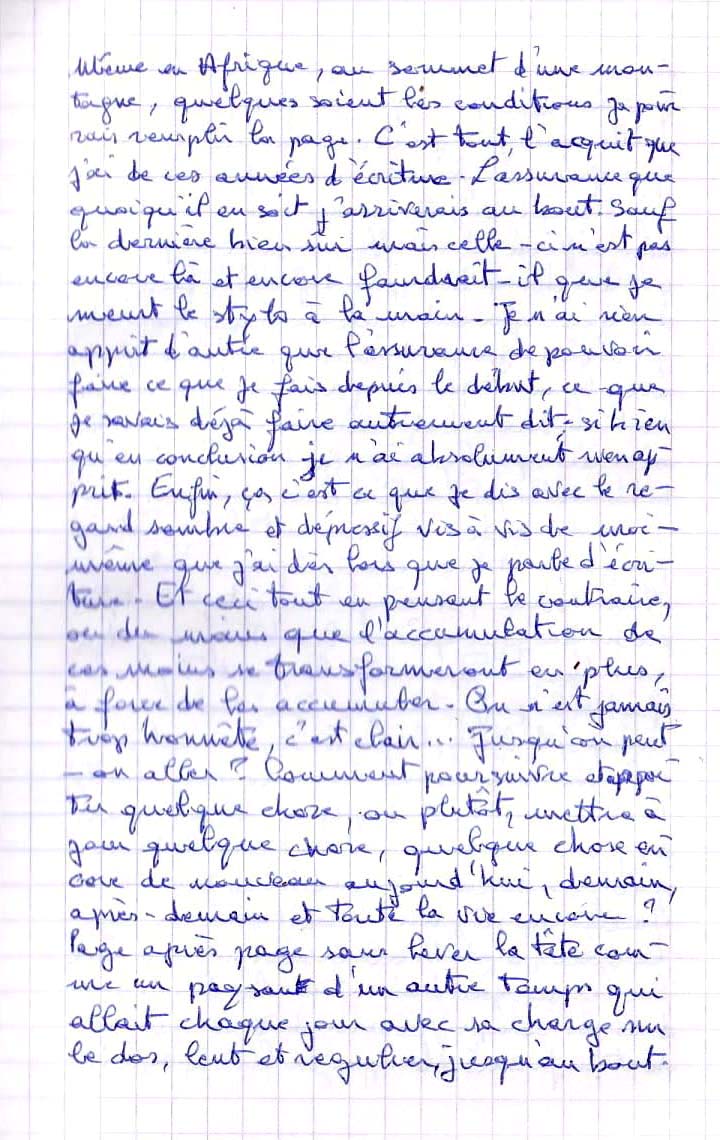 Même en Afrique, au sommet d'une mon-
tagne, quelques soient les conditions je pour
rais remplir la page. C'est tout, l'acquit que
j'ai de ces années d'écriture. L'assurance que
quoiqu'il en soit j'arriverais au bout. Sauf
la dernière bien sûr mais celle-ci n'est pas
encore là et encore faudrait-il que je
meurt le stylo à la main. Je n'ai rien
apprit d'autre que l'assurance de pouvoir
faire ce que je fais depuis le début, ce que
je savais déjà faire autrement dit, si bien
qu'en conclusion je n'ai absolument rien ap-
prit. Enfin, ça, c'est ce que je dis avec le re-
gard sombre et dépressif vis à vis de moi-
même que j'ai dès lors que je parle d'écri-
ture. Et ceci tout en pensant le contraire,
ou du moins que l'accumulation de
ces moins se transformeront en plus,
à force de les accumuler. On n'est jamais
trop honnête, c'est clair... Jusqu'où peut
-on aller? Comment poursuivre et
quelque chose, ou plutôt, mettre à
jour quelque chose, quelque chose en
core de nouveau aujourd'hui, demain,
après-demain et toute la vie encore?
Page après page sans lever la tête com-
me un paysant d'un autre temps qui
allait chaque jour avec sa charge sur
le dos, lent et régulier, jusqu'au bout.